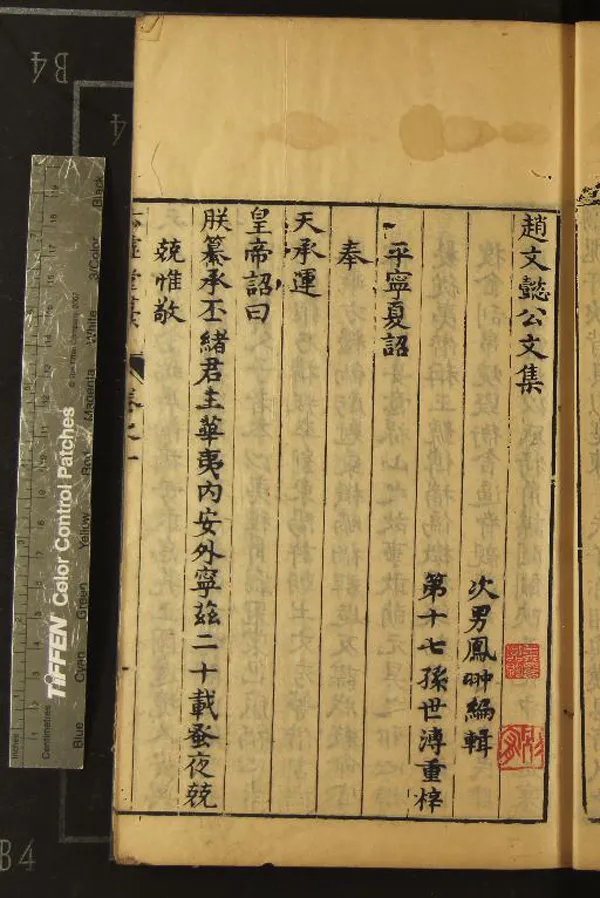 趙文懿公文集
次男鳳翀編輯
第十七孫世溥重梓
平寧夏詔
奉
天承運
皇帝詔曰
朕纂承丕緒君主華夷內安外寧茲二十載蚤夜兢
兢惟敬
卷之一
TIFFEN Color Control Patches
Blue
Cyan
Green
Yellow
Red
Magenta
White
3/Color
Black
Inches
Centimetres
B4
4
B4